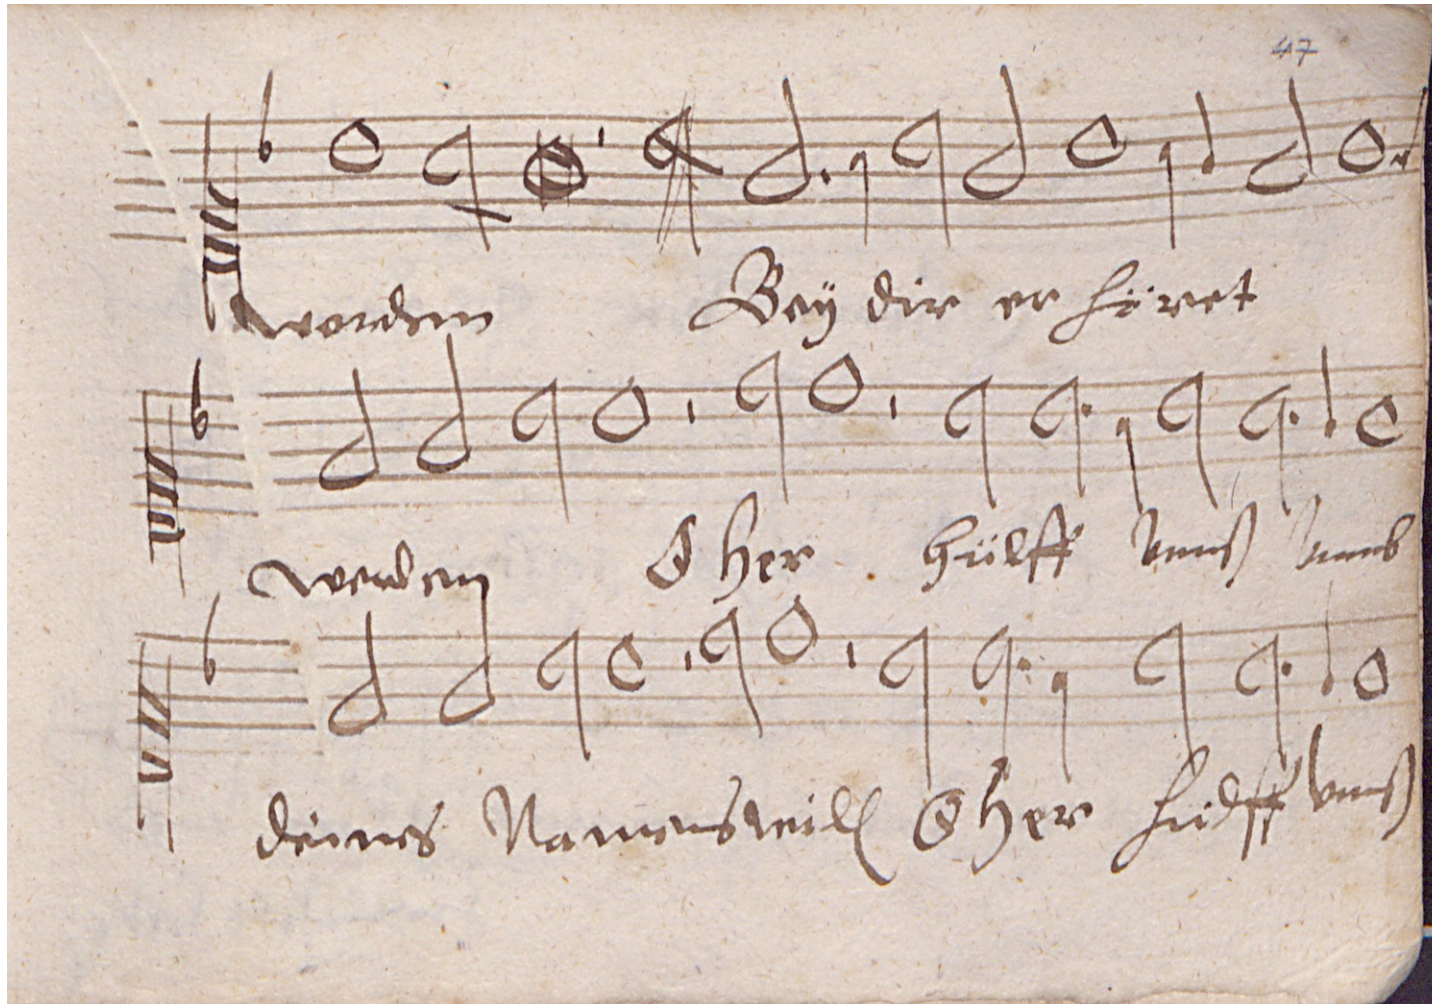 47
worden Bey dir er höret
werden O Her hülff vnnß vmb
deines Namens will O Her hülff vnnß